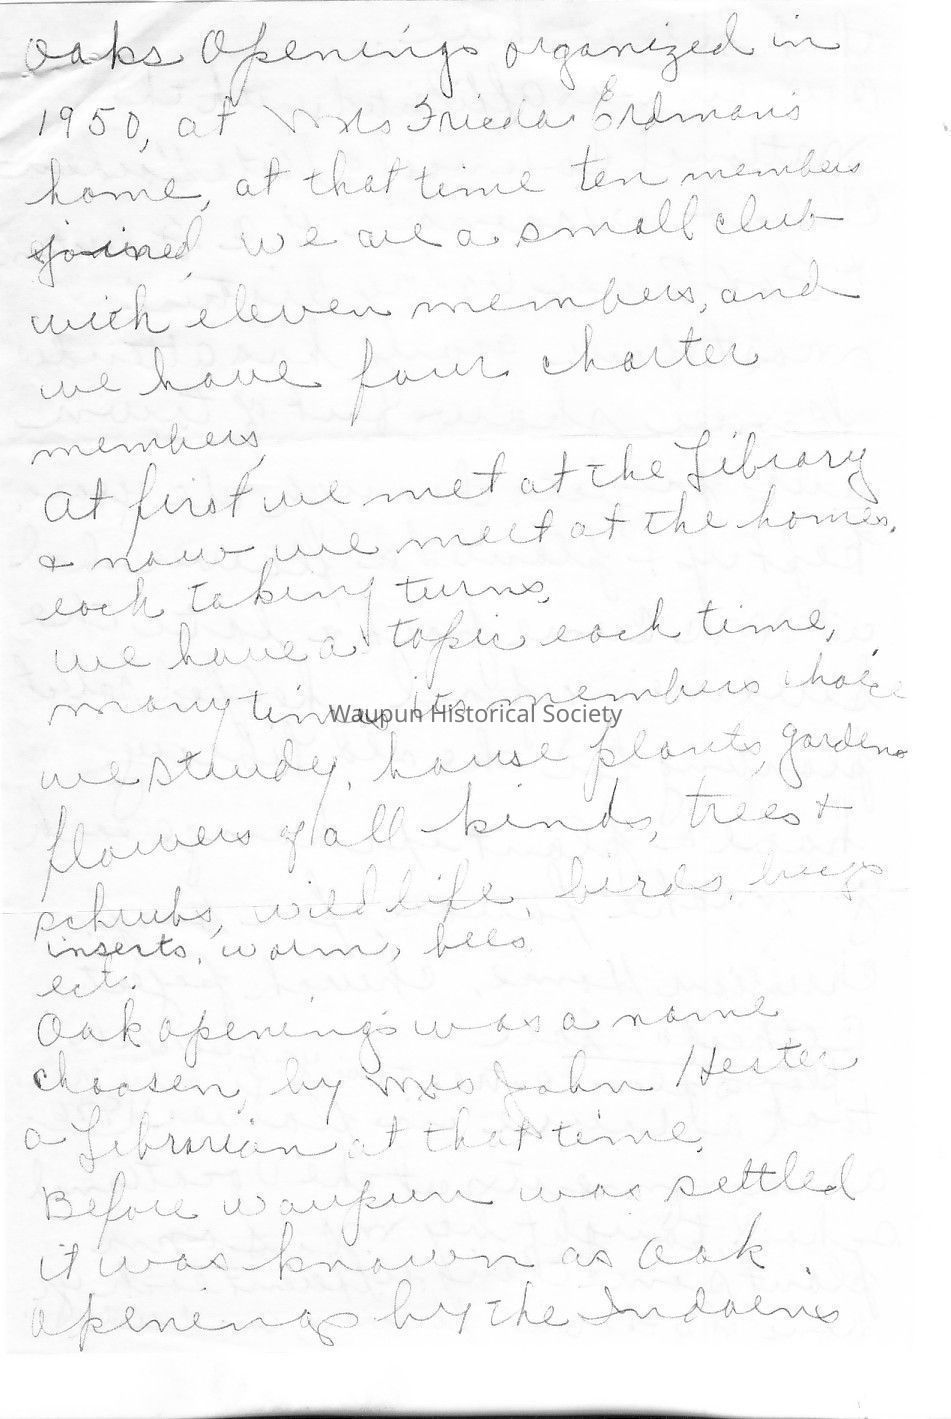 Oaks Openings organized in
1950, at Mrs Frieda Erdman's
home, at that time ten members
joined, we are a small club
with eleven members, and
we have four charter
members,
At first we met at the Library
& now we meet at the homes,
each taking turns,
we have a topic each time,
many times its members choice
Waupun Historical Society
we study, house plants, gardens
flowers of all kinds, trees &
schrubs, wild life, birds, bugs
inserts, worm, bees
ect.
Oak openings was a name
choosen, by Mrs John Hester
a Librarian at that time,
Before waupun was settled
it was known as Oak
openings by the Indaens